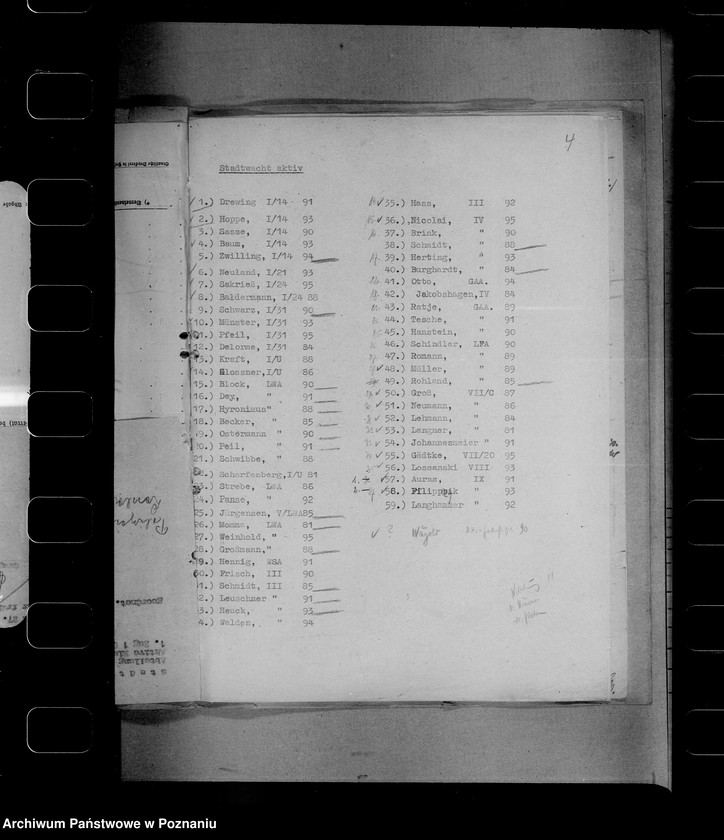 4
Stadtwacht aktiv
1.) Drewing I/14 91
2.) Hoppe, I/14 93
3.) Sasse, I/14 90
4.) Baum, I/14 93
5.) Zwilling, I/14 94
6.) Neuland, I/21 93
7.) Sakrieß, I/24 95
8.) Baldermann, I/24 88
9.) Schwarz, I/31 90
10.) Münster, I/31 93
11.) Pfeil, I/31 95
12.) Delorme, I/31 84
13.) Kraft, I/U 88
14.) Glossmer, I/U 86
15.) Block, LWA 90
16.) Dey, " 91
17.) Hyronimus" 88
18.) Becker, " 85
19.) Ostermann " 90
20.) Peil, " 91
21.) Schwibbe, " 88
22.) Scharfenberg, I/U 81
23.) Strebe, LWA 86
24.) Panse, " 92
25.) Jürgensen, V/LWA85
26.) Momme, LWA 81
27.) Weinhold, " 95
28.) Großmann," 88
29.) Hennig, WSA 91
30.) Frisch, III 90
31.) Schmidt, III 85
32.) Leuschner " 91
33.) Heuck, " 93
34.) Walden, " 94
35.) Hass, III 92
36.) Nicolai, IV 95
37.) Brink, " 90
38.) Schmidt, " 88
39.) Herting, " 93
40.) Burghardt, " 84
41.) Otto, GAA. 94
42.) Jakobshagen, IV 84
43.) Ratje, GAA. 89
44.) Tesche, " 91
45.) Hanstein, " 90
46.) Schindler, LFA 90
47.) Romann, " 89
48.) Müller, " 89
49.) Rohland, " 85
50.) Groß, VII/C 87
51.) Neumann, " 86
52.) Lehmann, " 84
53.) Langner, " 81
54.) Johannesmeier " 91
55.) Gädtke, VII/20 95
56.) Lossanski VIII 93
57.) Auras, IX 91
58.) Philippik " 93
59.) Langhammer " 92
? 90
Archiwum Państwowe w Poznaniu